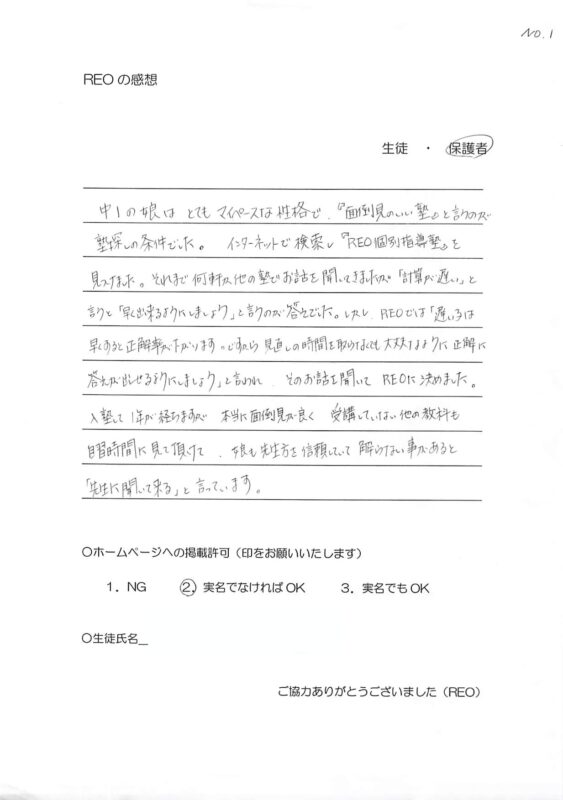 NO.1
REOの感想
生徒 ・ 保護者
中1の娘は とても マイペースな性格で、『面倒見のいい塾』と言うのが
塾探しの条件でした。 インターネットで検索し『REO個別指導塾』を
見つけました。それまで何軒か他の塾でお話を聞いてきましたが「計算が遅い」と
言うと「早く出来るようにしましょう」と言うのが答えでした。しかし、REOでは「遅い子は
早くすると正解率が下がります。ですから 見直しの時間を取らなくても大丈夫なように 正解に
答えが出せるようにしましょう」と言われ、そのお話を聞いて REOに決めました。
入塾して1年が経ちますが 本当に面倒見が良く 受講していない他の教科も
自習時間に見て頂けて、娘も先生方を信頼していて 解らない事があると
「先生に聞いて来る」と言っています。
〇ホームページへの掲載許可(印をお願いいたします)
1.NG 2.実名でなければOK 3.実名でもOK
〇生徒氏名
ご協力ありがとうございました(REO)